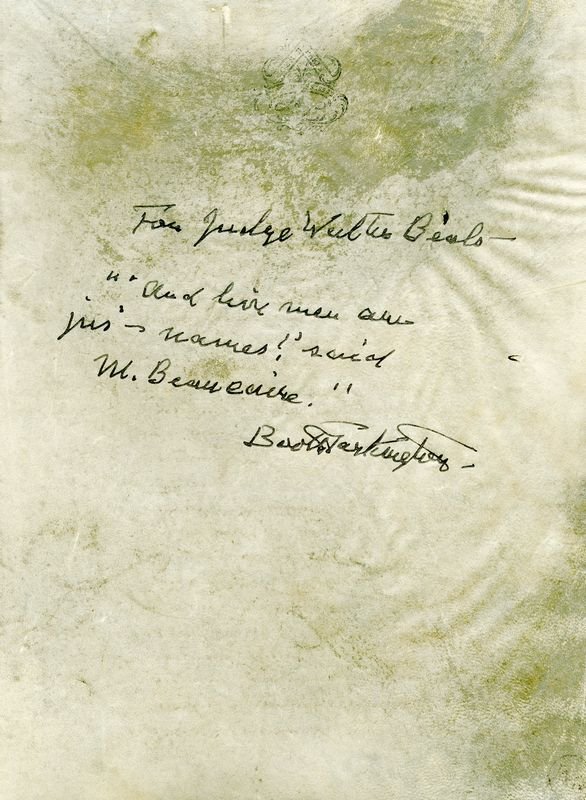 For Judge Walter Beals—
"'And live men are
jus'— names!' said
M. Beaucaire."
Booth Tarkington—